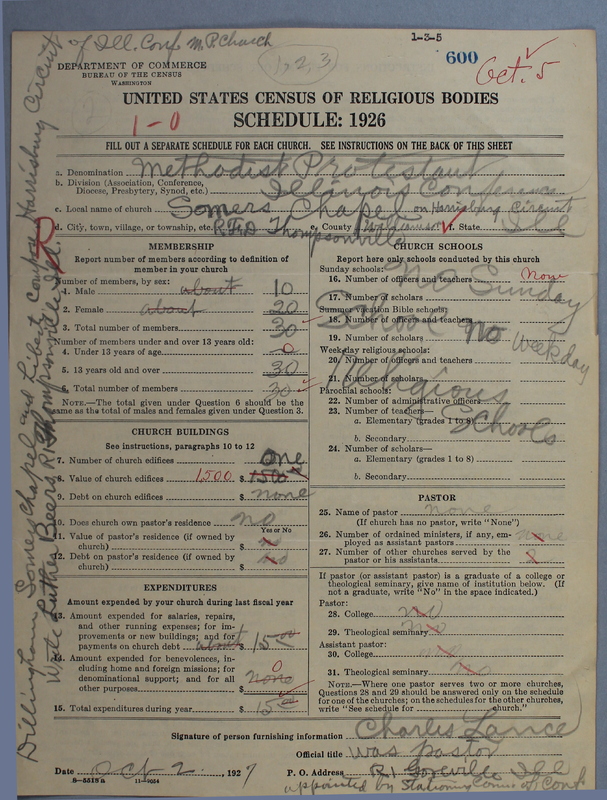 of Ill. Conf M.P. Church
1-3-5
600
Oct. 5
1, 2, 3
DEPARTMENT OF COMMERCE
BUREAU OF THE CENSUS
WASHINGTON
UNITED STATES CENSUS OF RELIGIOUS BODIES
1-0
SCHEDULE: 1926
FILL OUT A SEPARATE SCHEDULE FOR EACH CHURCH. SEE INSTRUCTIONS ON THE BACK OF THIS SHEET
a. Denomination Methodist Protestant
b. Division (Association, Conference, Diocese, Presbytery, Synod, etc.) Illinois Conference
c. Local name of church Somers Chapel on Harrisburg Circuit
d. City, town, village, or township, etc. R.F.D Thompsonville e. County f. State Ill
MEMBERSHIP
Report number of members according to definition of member in your church
Number of members, by sex:
1. Male about 10
2. Female about 20
3. Total number of members 30
Number of members under and over 13 years old:
4. Under 13 years of age 0
5. 13 years old and over 30
6. Total number of members 30
NOTE.—The total given under Question 6 should be the same as the total of males and females given under Question 3.
CHURCH BUILDINGS
See instructions, paragraphs 10 to 12
7. Number of church edifices one
8. Value of church edifices 1500 $ 1500
9. Debt on church edifices $ none
10. Does church own pastor's residence no
Yes or No
11. Value of pastor's residence (if owned by church) $
12. Debt on pastor's residence (if owned by church) $ no
EXPENDITURES
Amount expended by your church during last fiscal year
13. Amount expended for salaries, repairs, and other running expenses; for improvements or new buildings; and for payments on church debt about $ 15.00
14. Amount expended for benevolences, including home and foreign missions; for denominational support; and for all other purposes $ none 0
15. Total expenditures during year $ 15.00
CHURCH SCHOOLS
Report here only schools conducted by this church
Sunday schools:
16. Number of officers and teachers None
17. Number of scholars
Summer vacation Bible schools:
18. Number of officers and teachers
19. Number of scholars
Weekday religious schools:
20. Number of officers and teachers
21. Number of scholars
Parochial schools:
22. Number of administrative officers
23. Number of teachers—
a. Elementary (grades 1 to 8)
b. Secondary
24. Number of scholars—
a. Elementary (grades 1 to 8)
b. Secondary
no Sunday School no Weekday Religious Schools
PASTOR
25. Name of pastor none
(If church has no pastor, write "None")
26. Number of ordained ministers, if any, employed as assistant pastors none
27. Number of other churches served by the pastor or his assistants
If pastor (or assistant pastor) is a graduate of a college or theological seminary, give name of institution below. (If not a graduate, write "No" in the space indicated.)
Pastor:
28. College no
29. Theological seminary no
Assistant pastor:
30. College no
31. Theological seminary no
NOTE.—Where one pastor serves two or more churches, Questions 28 and 29 should be answered only on the schedule for one of the churches; on the schedules for the other churches, write "See schedule for church."
Signature of person furnishing information Charles Lance
Official title Was pastor
Date Oct 2, 1927
P. O. Address R1 Goreville Ill
8-5518a 11-9054
appointed by Stationing Comm of Conf
Dillingham, Somers Chapel and Liberty Harrisburg Circuit
Write Luther Beers, R1 Thompsonville Ill.